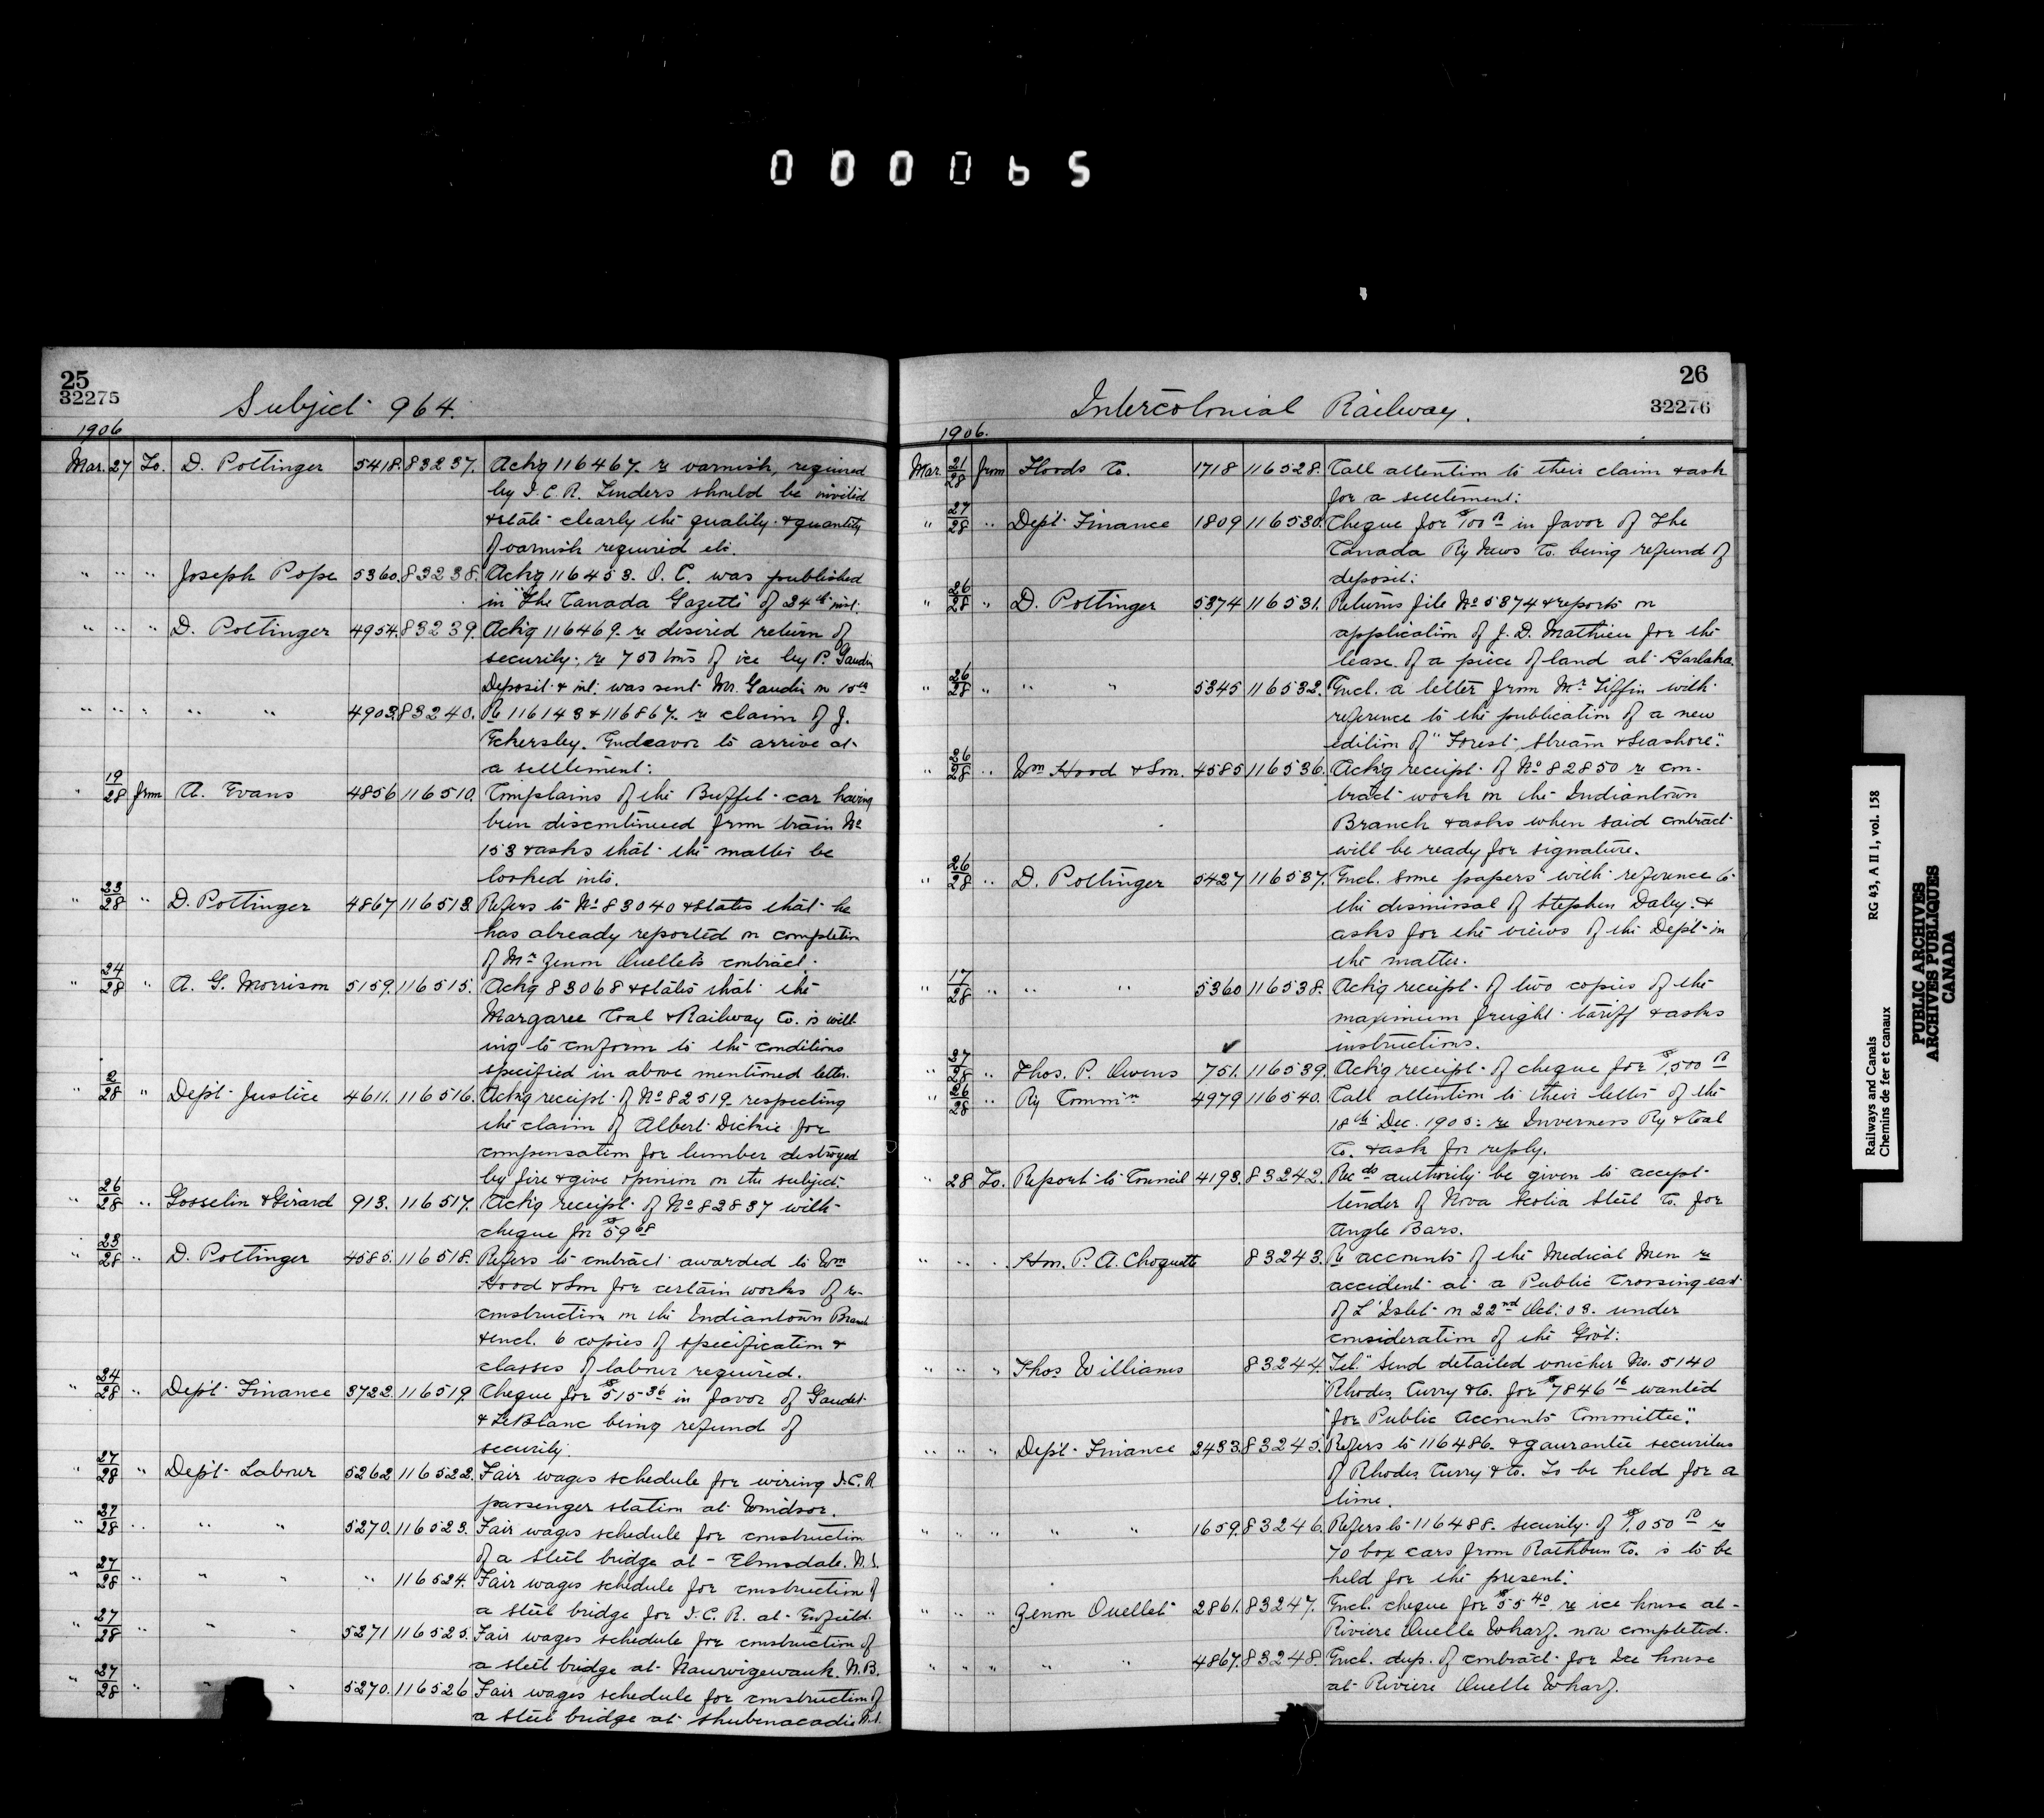 000065
25
32275
Subject 964.
1906
Mar. 27 To. D. Pottinger 5418. 83237. Ackg 116467. re varnish, required
by I.C.R. Tenders should be invited
& state clearly the quality & quantity
of varnish required etc.
" " " Joseph Pope 5360. 83238. Ackg 116453. O.C. was published
in "The Canada Gazette" of 24th inst.
" " " D. Pottinger 4954. 83239. Ackg 116469. re desired return of
security re 750 tons of ice by P. Gaudin
Deposit & int. was sent Mr. Gaudin on 15th
" " " " " 4903. 83240. Re 116143 & 116867. re claim of J.
Eckersley. Endeavor to arrive at
a settlement.
" 19/28 from A. Evans 4856 116510. Complains of the Buffet car having
been discontinued from train No
153 & asks that the matter be
looked into.
" 23/28 " D. Pottinger 4867 116513. Refers to No 83040 & states that he
has already reported on completion
of Mr Zenon Ouellet's contract.
" 24/28 " A. G. Morrison 5159. 116515. Ackg 83068 & states that the
Margaree Coal & Railway Co. is will-
ing to conform to the conditions
specified in above mentioned letter.
" 2/28 " Dept Justice 4611. 116516. Ackg receipt of No 82519 respecting
the claim of Albert Dickie for
compensation for lumber destroyed
by fire & give opinion on the subject.
" 26/28 " Gosselin & Girard 913. 116517. Ackg receipt of No 82837 with
cheque for $59 68
" 23/28 " D. Pottinger 4585. 116518. Refers to contract awarded to Wm
Hood & Son for certain works of re-
construction on the Indiantown Branch
& encl. 6 copies of specification &
classes of labour required.
" 24/28 " Dept Finance 3722. 116519. Cheque for $515 36 in favor of Gaudet
& LeBlanc being refund of
security.
" 27/28 " Dept Labour 5262 116522. Fair wages schedule for wiring I.C.R.
passenger station at Windsor.
" 27/28 " " " 5270. 116523. Fair wages schedule for construction
of a steel bridge at Elmsdale. N.S.
" 27/28 " " " " 116524. Fair wages schedule for construction of
a steel bridge for I.C.R. at Enfield.
" 27/28 " " " 5271 116525. Fair wages schedule for construction of
a steel bridge at Nauwigewauk. N.B.
" 27/28 " " " 5270. 116526 Fair wages schedule for construction of
a steel bridge at Shubenacadie N.S.
26
32276
Intercolonial Railway.
1906.
Mar. 21/28 from Hoods Co. 1718 116528. Call attention to their claim & ask
for a settlement.
" 27/28 " Dept Finance 1809 116530. Cheque for $100 00 in favor of The
Canada Ry News Co. being refund of
deposit.
" 26/28 " D. Pottinger 5374 116531. Returns file No 5374 & reports on
application of J. D. Mathieu for the
lease of a piece of land at Harlaka
" 26/28 " " " 5345 116532. Encl. a letter from Mr Tiffin with
reference to the publication of a new
edition of "Forest, Stream & Seashore".
" 26/28 " Wm Hood & Son. 4585 116536. Ackg receipt of No 82850 re con-
tract work on the Indiantown
Branch & asks when said contract
will be ready for signature.
" 26/28 " D. Pottinger 5427 116537. Encl. some papers with reference to
the dismissal of Stephen Daley &
asks for the views of the Dept in
the matter.
" 17/28 " " " 5360 116538. Ackg receipt of two copies of the
maximum freight tariff & asks
instructions.
" 27/28 " Thos. P. Owens 751. 116539. Ackg receipt of cheque for $1,500 00
" 26/28 " Ry Commn 4979 116540. Call attention to their letter of the
18th Dec. 1905. re Inverness Ry & Coal
Co. & ask for reply.
" 28 To. Report to Council 4193. 83242. Recds authority be given to accept
tender of Nova Scotia Steel Co. for
Angle Bars.
" " " Hon. P. A. Choquette 83243. Re accounts of the Medical Men re
accident at a Public Crossing east
of L'Islet on 22nd Oct. 03. under
consideration of the Govt.
" " " Thos Williams 83244. Tel. "Send detailed voucher No. 5140
"Rhodes, Curry & Co. for $7846 16 wanted
"for Public Accounts Committee".
" " " Dept Finance 2433. 83245. Refers to 116486. & gaurantee securities
of Rhodes, Curry & Co. To be held for a
time.
" " " " " 1659. 83246. Refers to 116488. security of $7,050 00 re
70 box cars from Rathbun Co. is to be
held for the present.
" " " Zenon Ouellet 2861. 83247. Encl. cheque for $55 40 re ice house at
Riviere Ouelle Wharf. now completed.
" " " " " 4867. 83248. Encl. dup. of contract for Ice house
at Riviere Ouelle Wharf.
Railways and Canals RG 43, A II 1, vol. 158
Chemins de fer et canaux
PUBLIC ARCHIVES
ARCHIVES PUBLIQUES
CANADA